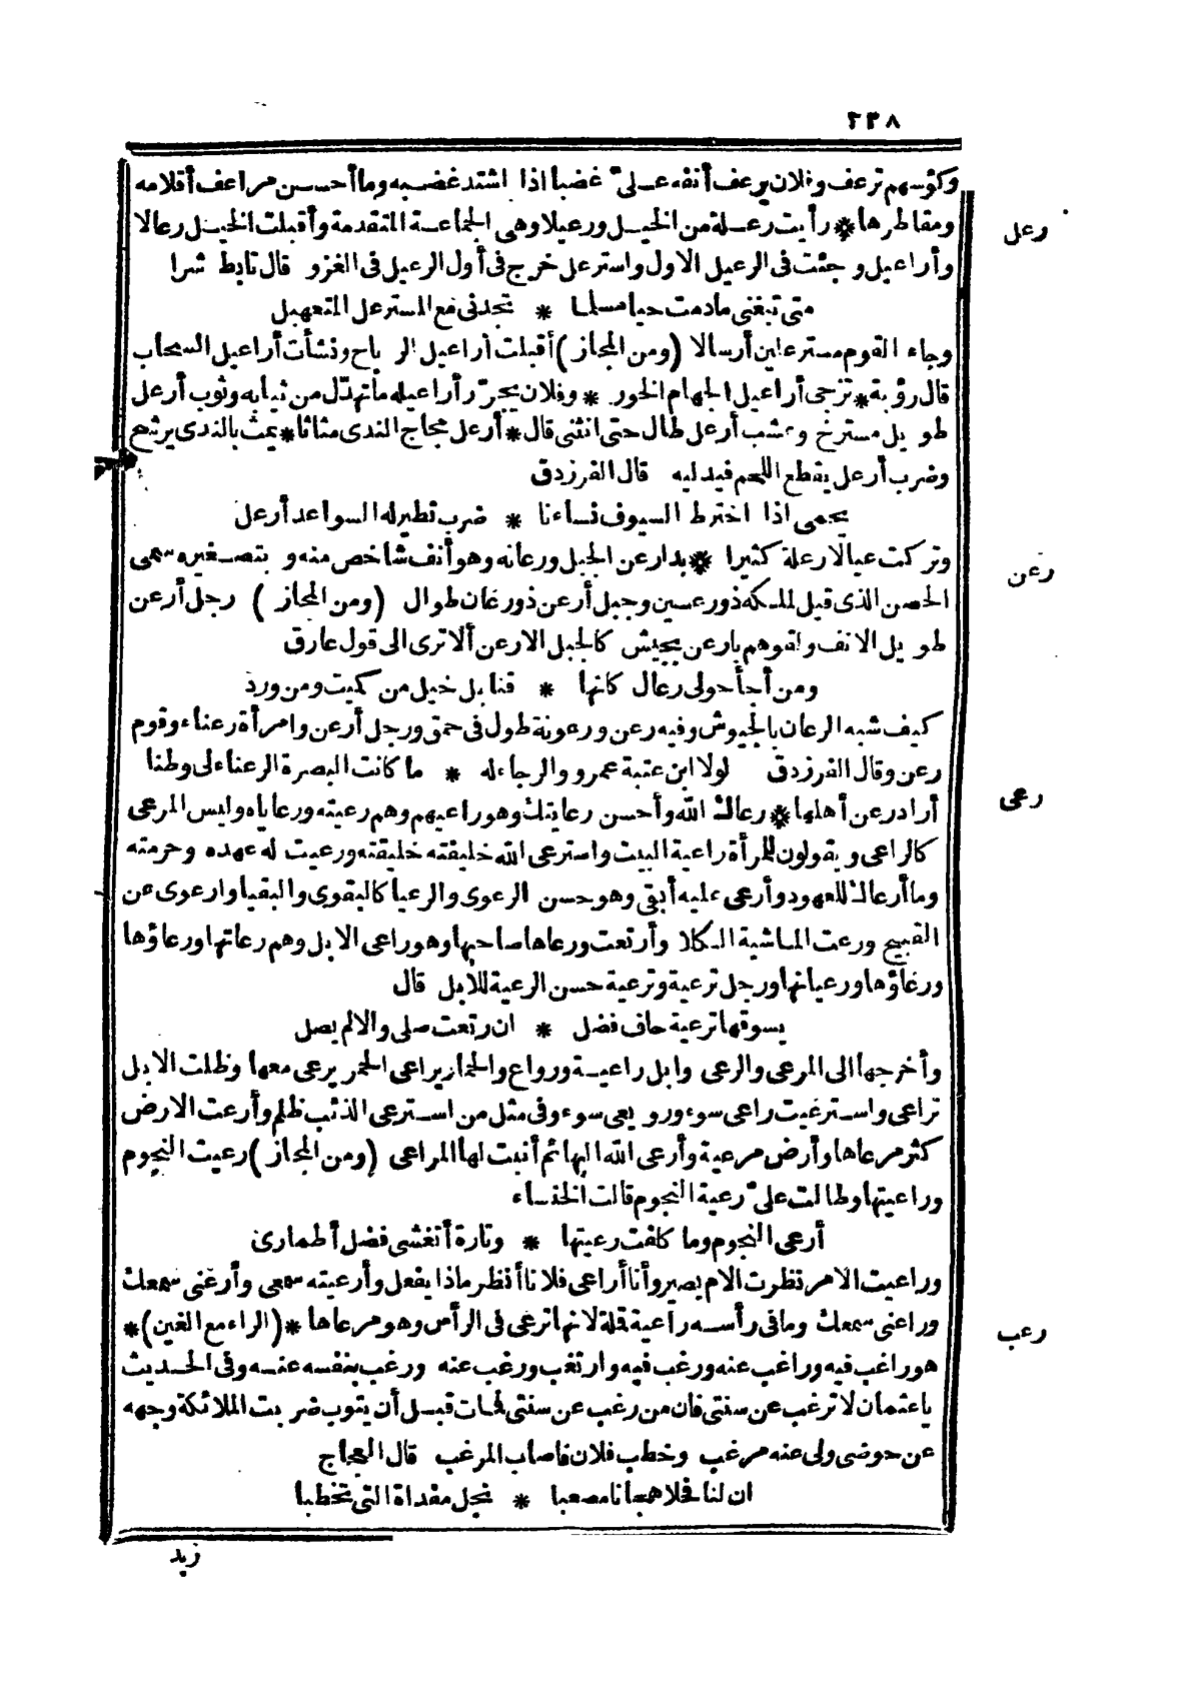 ٢٣٨
وكؤسهم ترعف وفلان يرعف أنفه علىّ غضبا اذا اشتد غضبه وما أحسن مراعف أقلامه
رعل
ومقاطرها * رأيت رعلة من الخيل ورعيلا وهى الجماعة المتقدمة وأقبلت الخيل رعالا
وأراعيل وجئت فى الرعيل الاول واسترعل خرج فى أول الرعيل فى الغزو قال تابط شرا
متى تبغنى مادمت حيا مسلما * تجدنى مع المسترعل المتعهبل
وجاء القوم مسترعلين أرسالا (ومن المجاز) أقبلت أراعيل الرياح ونشأت أراعيل السحاب
قال رؤبة * تزجى أراعيل الجهام الخور * وفلان يجرّ أراعيله ماتهدّل من ثيابه وثوب أرعل
طويل مسترخ وعشب أرعل طال حتى انثنى قال * أرعل مجاج الندى مثاثا * يمث بالندى يرشح
وضرب أرعل يقطع اللحم فيدليه قال الفرزدق
يحمى اذا اخترط السيوف نساءنا * ضرب تطير له السواعد أرعل
رعن
وتركت عيالا رعلة كثيرا * بدا رعن الجبل ورعانه وهو أنف شاخص منه وبتصغيره سمى
الحصن الذى قيل لملكه ذو رعين وجبل أرعن ذو رعان طوال (ومن المجاز) رجل أرعن
طويل الانف ولقوهم بارعن بجيش كالجبل الارعن ألا ترى الى قول عارق
ومن أجأ حولى رعال كانها * قنابل خيل من كميت ومن ورد
كيف شبه الرعان بالجيوش وفيه رعن ورعونة طول فى حمق ورجل أرعن وامرأة رعناء وقوم
رعن وقال الفرزدق لولا ابن عتبة عمرو والرجاء له * ما كانت البصرة الرعناء لى وطنا
رعى
أراد رعن أهلها * رعاك الله وأحسن رعايتك وهو راعيهم وهم رعيته ورعاياه وليس المرعى
كالراعى ويقولون للمرأة راعية البيت واسترعى الله خليقته خليفته ورعيت له عهده وحرمته
وما أرعاك للعهود وأرعى عليه أبقى وهو حسن الرعوى والرعيا كالبقوى والبقيا وارعوى عن
القبيح ورعت الماشية الكلا وأرتعت ورعاها صاحبها وهو راعى الابل وهم رعاتها ورعاؤها
ورعاؤها ورعيانها ورجل ترعية وترعية حسن الرعية للابل قال
يسوقها ترعية حاف فضل * ان رتعت صلى والا لم يصل
وأخرجها الى المرعى والرعى وابل راعية ورواع والحمار يراعى الحمر يرعى معها وظلت الابل
تراعى واسترعيت راعى سوء ورويعى سوء وفى مثل من استرعى الذئب ظلم وأرعت الارض
كثر مرعاها وأرض مرعية وأرعى الله البهائم أنبت لها المراعى (ومن المجاز) رعيت النجوم
وراعيتها وطالت علىّ رعية النجوم قالت الخنساء
أرعى النجوم وما كلفت رعيتها * وتارة أتغشى فضل أطمارى
وراعيت الامر نظرت الام يصير وأنا أراعى فلانا أنظر ماذا يفعل وأرعيته سمعى وأرعنى سمعك
رغب
وراعنى سمعك وما فى رأسه راعية قلة لانها ترعى فى الرأس وهو مرعاها * (الراء مع الغين) *
هو راغب فيه وراغب عنه ورغب فيه وارتغب ورغب عنه ورغب بنفسه عنه وفى الحديث
يا عثمان لا ترغب عن سنتى فان من رغب عن سنتى فمات قبل أن يتوب ضربت الملائكة وجهه
عن حوضى ولى عنه مرغب وخطب فلان فاصاب المرغب قال العجاج
ان لنا فحلا هجانا مصعبا * نجل مفداة التى تخطبا
زيد